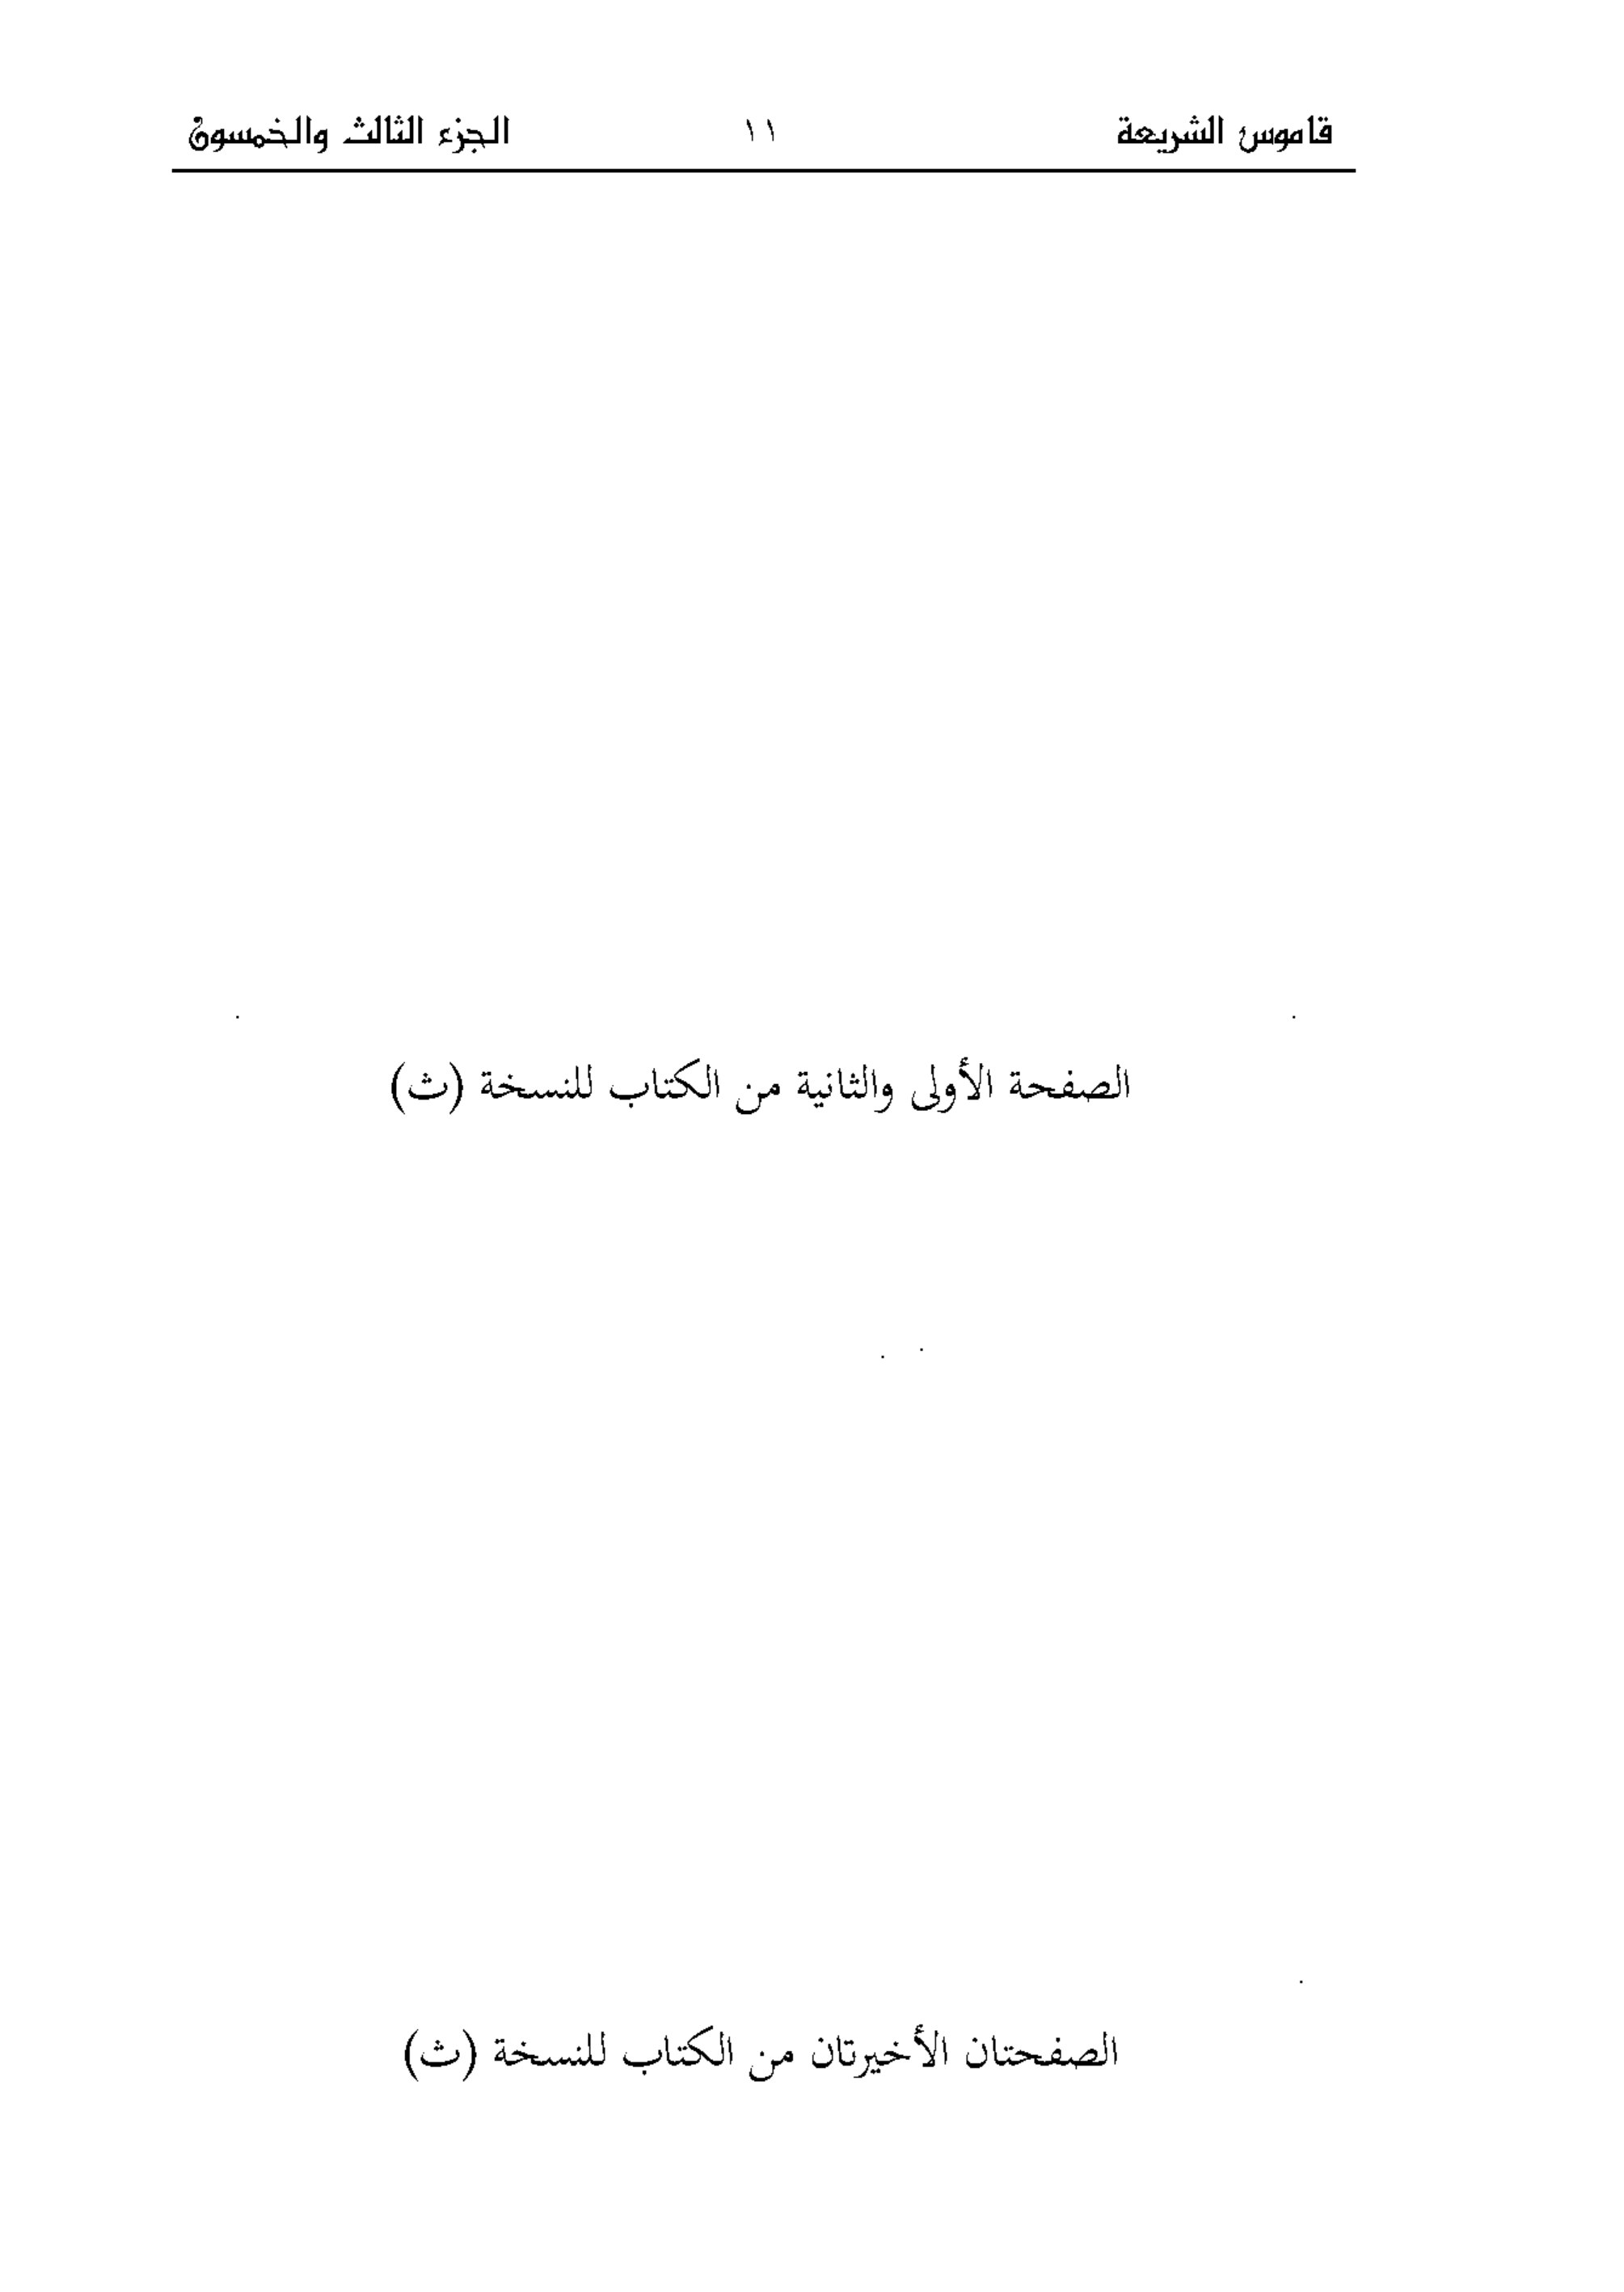 قاموس الشريعة ١١ الجزء الثالث والخمسون
الصفحة الأولى والثانية من الكتاب للنسخة (ث)
الصفحتان الأخيرتان من الكتاب للنسخة (ث)